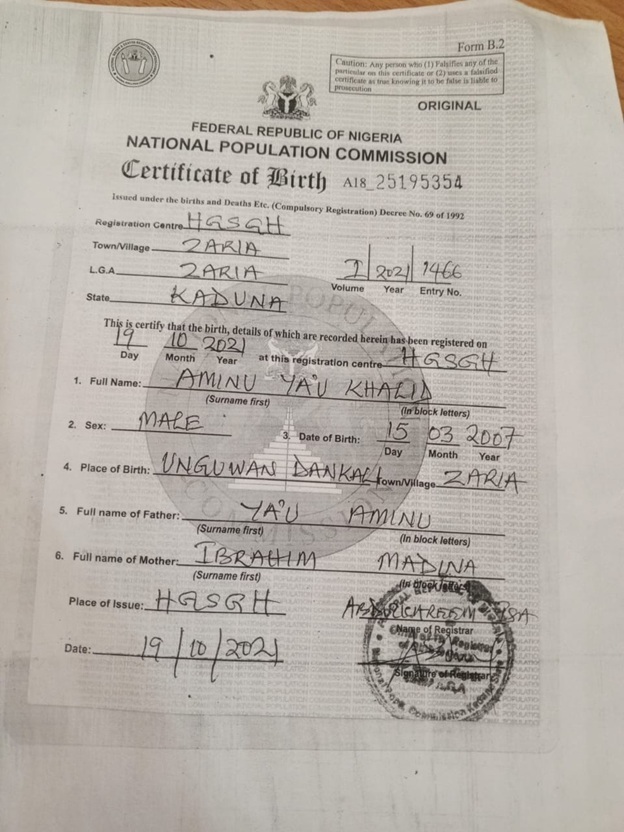 Form B.2
Caution: Any person who (1) Falsifies any of the
particular on this certificate or (2) uses a falsified
certificate as true knowing it to be false is liable to
prosecution
ORIGINAL
FEDERAL REPUBLIC OF NIGERIA
NATIONAL POPULATION COMMISSION
Certificate of Birth A18_25195354
Issued under the births and Deaths Etc. (Compulsory Registration) Decree No. 69 of 1992
Registration Centre HGSGH
Town/Village ZARIA
L.G.A ZARIA
State KADUNA
1 2021 1466
Volume Year Entry No.
This is certify that the birth, details of which are recorded herein has been registered on
19 10 2021 at this registration centre HGSGH
Day Month Year
1. Full Name: AMINU YA'U KHALID
(Surname first) (In block letters)
2. Sex: MALE
3. Date of Birth: 15 03 2007
Day Month Year
4. Place of Birth: UNGUWAN DANKALI Town/Village ZARIA
5. Full name of Father: YA'U AMINU
(Surname first) (In block letters)
6. Full name of Mother: IBRAHIM MADINA
(Surname first) (In block letters)
Place of Issue: HGSGH
ABDULKAREEM ISA
Name of Registrar
Date: 19/10/2021
Signature of Registrar